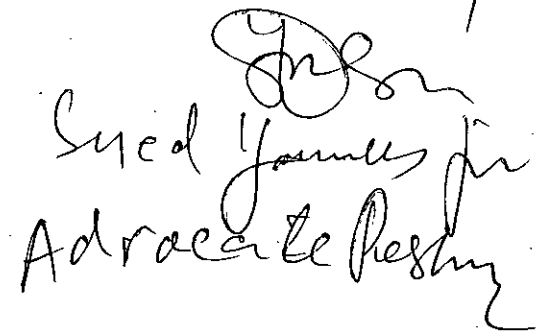 Syed Younus Jan
Advocate Peshr